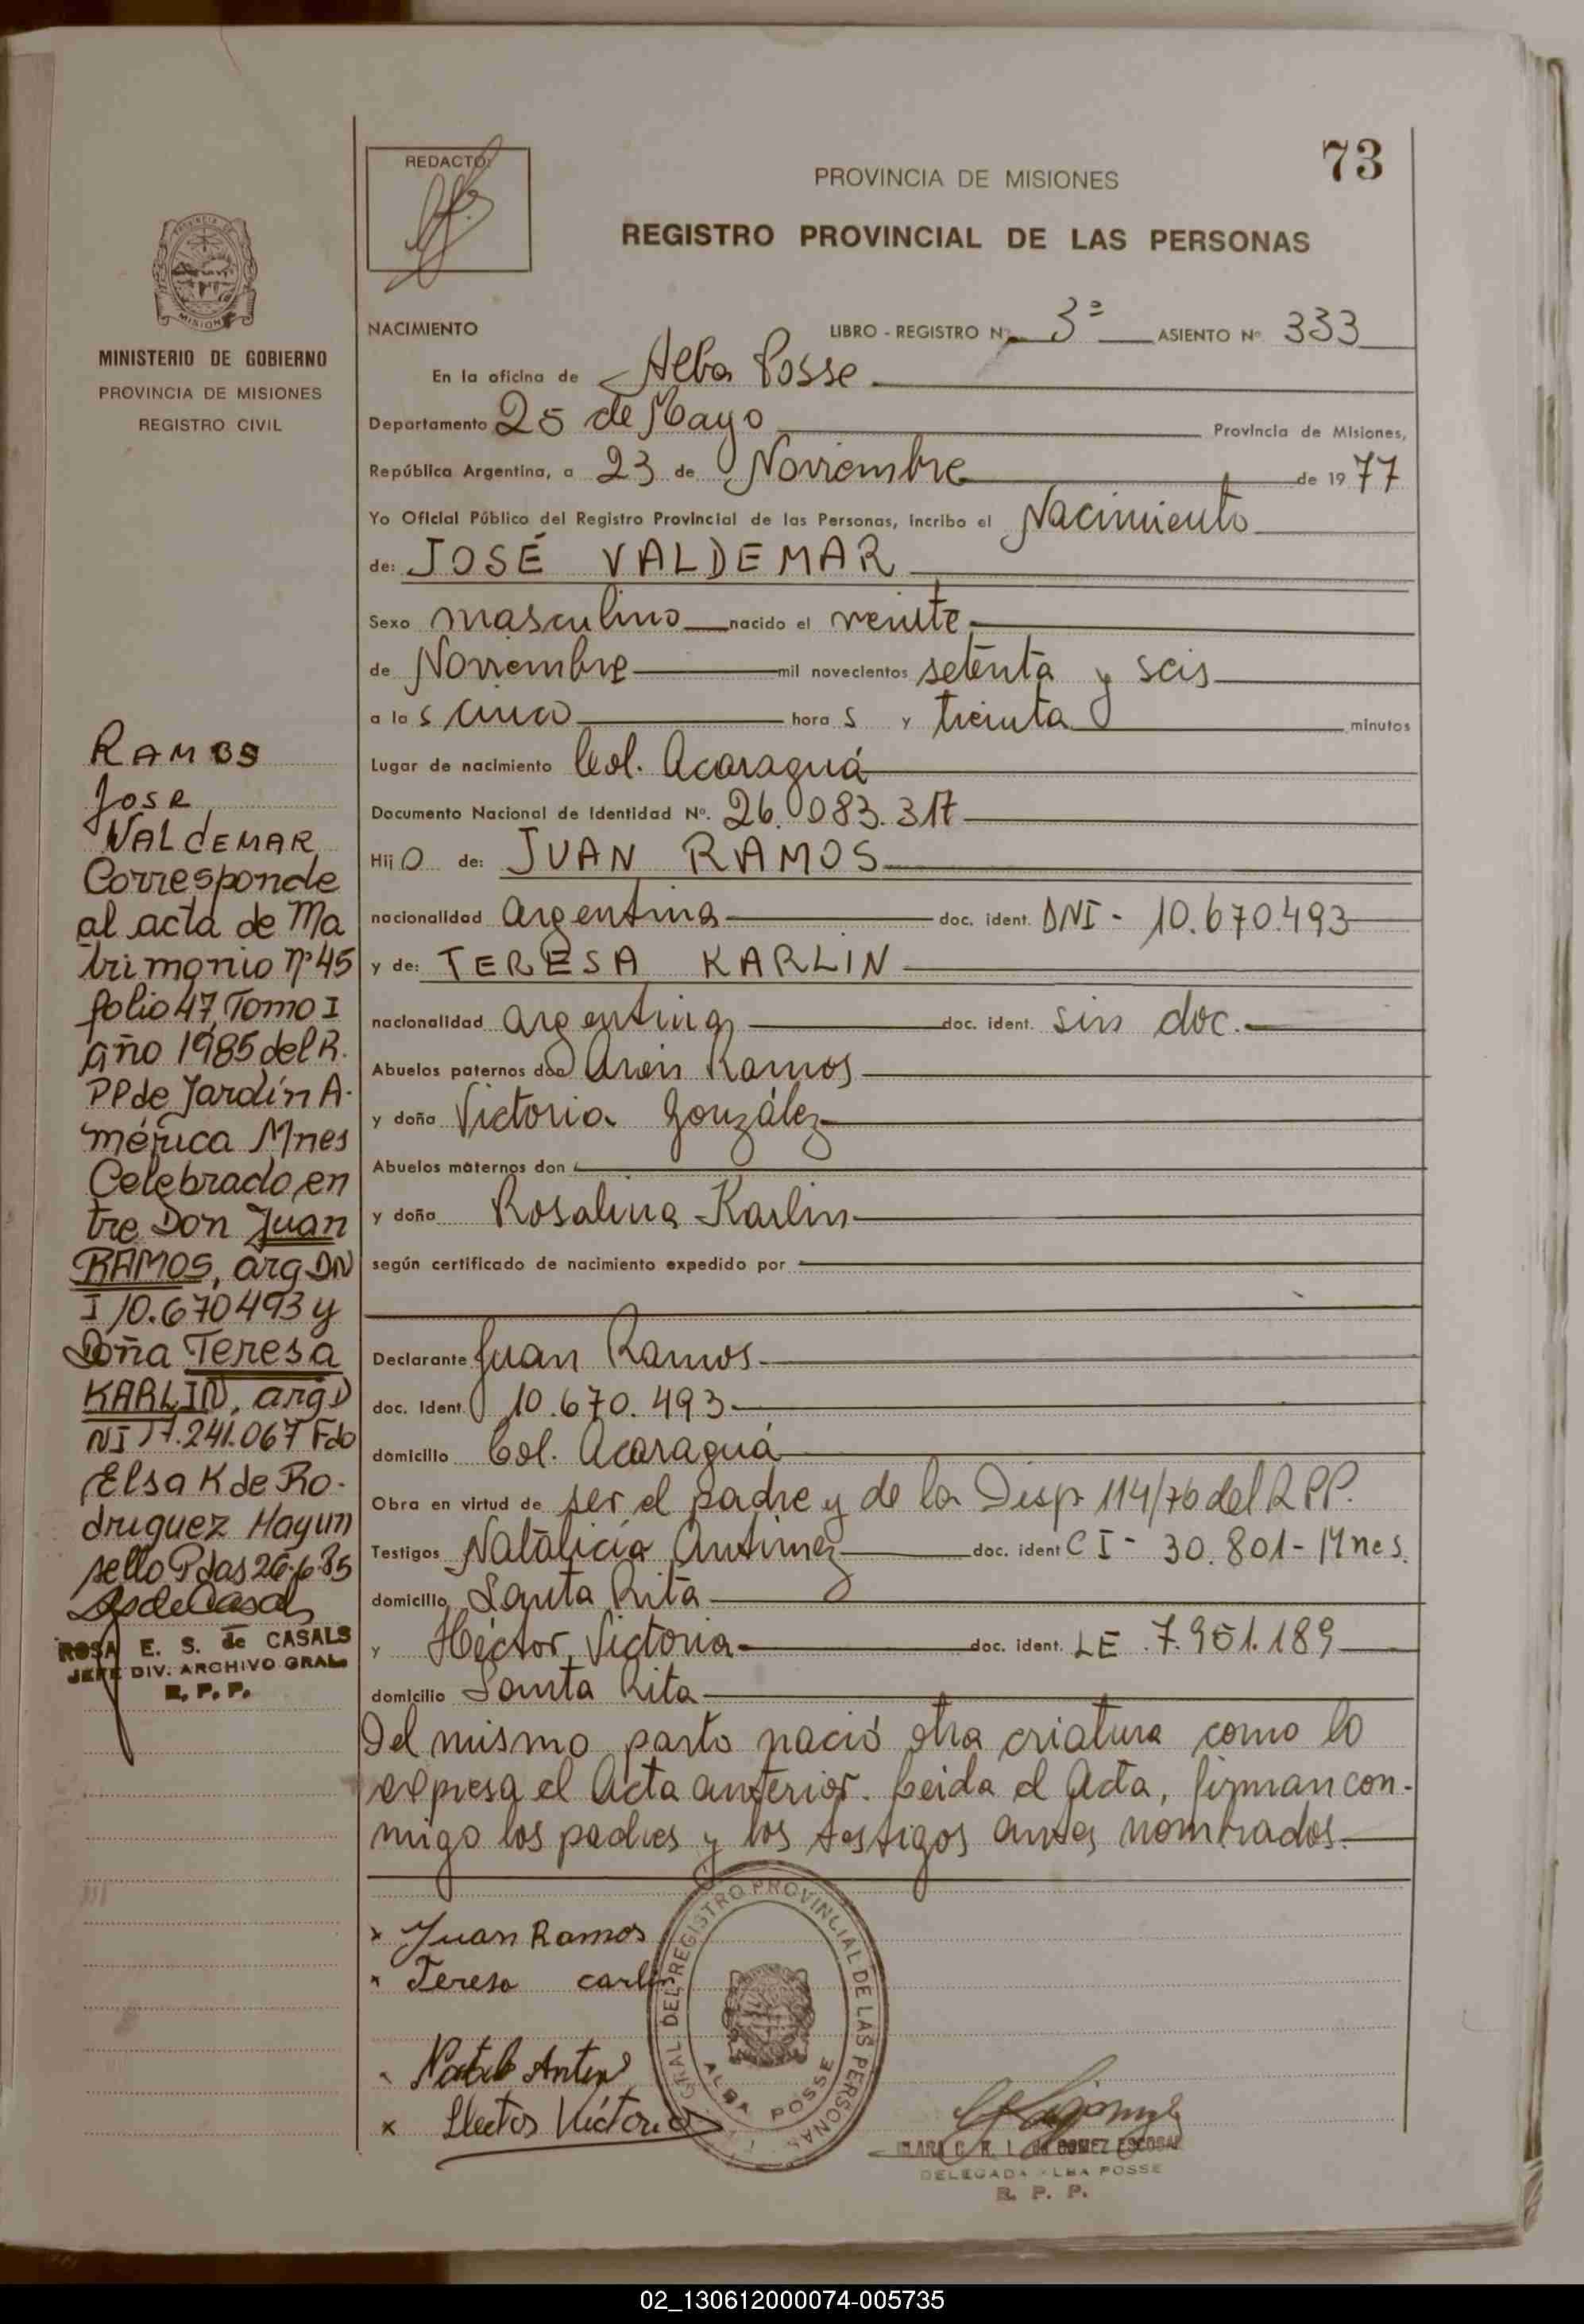 73
REDACTO:
PROVINCIA DE MISIONES
REGISTRO PROVINCIAL DE LAS PERSONAS
MINISTERIO DE GOBIERNO
PROVINCIA DE MISIONES
REGISTRO CIVIL
NACIMIENTO LIBRO - REGISTRO Nº 3ª ASIENTO Nº 333
En la oficina de Alba Posse
Departamento 25 de Mayo Provincia de Misiones,
República Argentina, a 23 de Noviembre de 1977
Yo Oficial Público del Registro Provincial de las Personas, incribo el Nacimiento
de: JOSÉ VALDEMAR
Sexo masculino nacido el veinte
de Noviembre mil novecientos setenta y seis
a las cinco horas y treinta minutos
Lugar de nacimiento Col. Acaraguá
Documento Nacional de Identidad Nº. 26.083.317
Hijo de: JUAN RAMOS
nacionalidad argentina doc. ident. DNI - 10.670.493
y de: TERESA KARLIN
nacionalidad argentina doc. ident. sin doc.
Abuelos paternos don Ramos
y doña Victoria González
Abuelos maternos don
y doña Rosalina Karlin
según certificado de nacimiento expedido por
Declarante Juan Ramos
doc. Ident. 10.670.493
domicilio Col. Acaraguá
Obra en virtud de ser el padre y de la Disp. 114/76 del RPP.
Testigos Natalicia Antunez doc. ident CI - 30.801 - Mnes.
domicilio Santa Rita
y Héctor Victoria doc. ident. LE 7.951.189
domicilio Santa Rita
Del mismo parto nació otra criatura como lo
expresa el Acta anterior. Leida el Acta, firman con-
migo los padres y los testigos antes nombrados.
RAMOS
JOSE
VALdEMAR
Corresponde
al acta de Ma
trimonio nº45
folio 47, Tomo I
año 1985 del R.
PP de Jardín A-
mérica Mnes
Celebrado en
tre Don Juan
RAMOS, arg DN
I 10.670493 y
Doña Teresa
KARLIN, arg D
NI 17.241.067 Fdo
Elsa K de Ro-
driguez Hay un
sello Pdas 26-6-85
ROSA E. S. de CASALS
JEFE DIV. ARCHIVO GRAL.
R. P. P.
x Juan Ramos
x Teresa carlin
x Hector Victoria
GRAL. DEL REGISTRO PROVINCIAL DE LAS PERSONAS
ALBA POSSE
CLARA de GOMEZ ESCOBAR
DELEGADA ALBA POSSE
R. P. P.
02_130612000074-005735